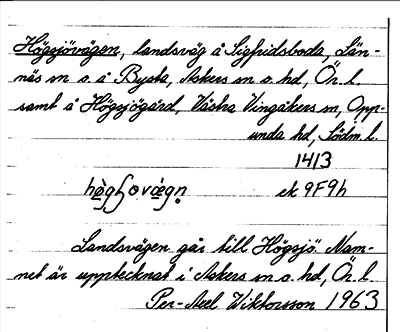 Högsjövägen, landsväg å Sigfridsboda, Län-
näs sn o. å Bysta, Askers sn o. hd, Ör. l.
samt å Högsjögård, Västra Vingåkers sn, Opp-
unda hd, Södm. l.
1413
ek 9F9h
Landsvägen går till Högsjö. Nam-
net är upptecknat i Askers sn o. hd, Ör. l.
Per-Axel Wiktorsson 1963